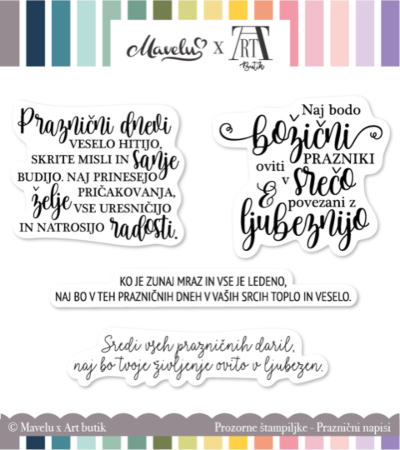 Mavelu x ART
Butik
Praznični dnevi
VESELO HITIJO,
SKRITE MISLI IN sanje
BUDIJO. NAJ PRINESEJO
želje PRIČAKOVANJA,
VSE URESNIČIJO
IN NATROSIJO radosti.
Naj bodo
božični
oviti PRAZNIKI
v srečo
& povezani z
ljubeznijo
KO JE ZUNAJ MRAZ IN VSE JE LEDENO,
NAJ BO V TEH PRAZNIČNIH DNEH V VAŠIH SRCIH TOPLO IN VESELO.
Sredi vseh prazničnih daril,
naj bo tvoje življenje ovito v ljubezen.
© Mavelu x Art butik
Prozorne štampiljke - Praznični napisi